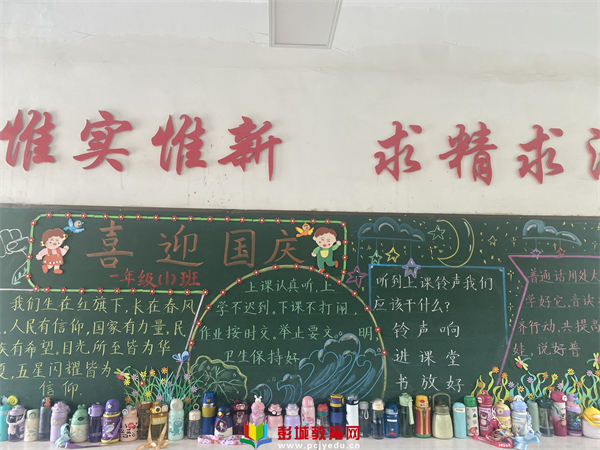 惟实惟新 求精求
喜迎国庆
一年级(1)班
我们生在红旗下,长在春风
人民有信仰,国家有力量,民
族有希望,目光所至皆为华
夏,五星闪耀皆为
信仰
上课认真听,上
学不迟到,下课不打闹,
作业按时交,举止要文明,
卫生保持好
听到上课铃声我们
应该干什么?
铃声响
进课堂
书放好
普通话用处大
学好它,音读
齐行动,共提高
娃,说好普
彭城教育网
www.pcjyedu.cn